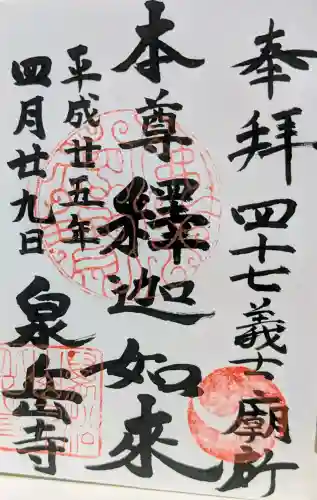 奉拝 四十七義士廟所
本尊釋迦如来
平成廿五年
四月廿九日
泉岳寺